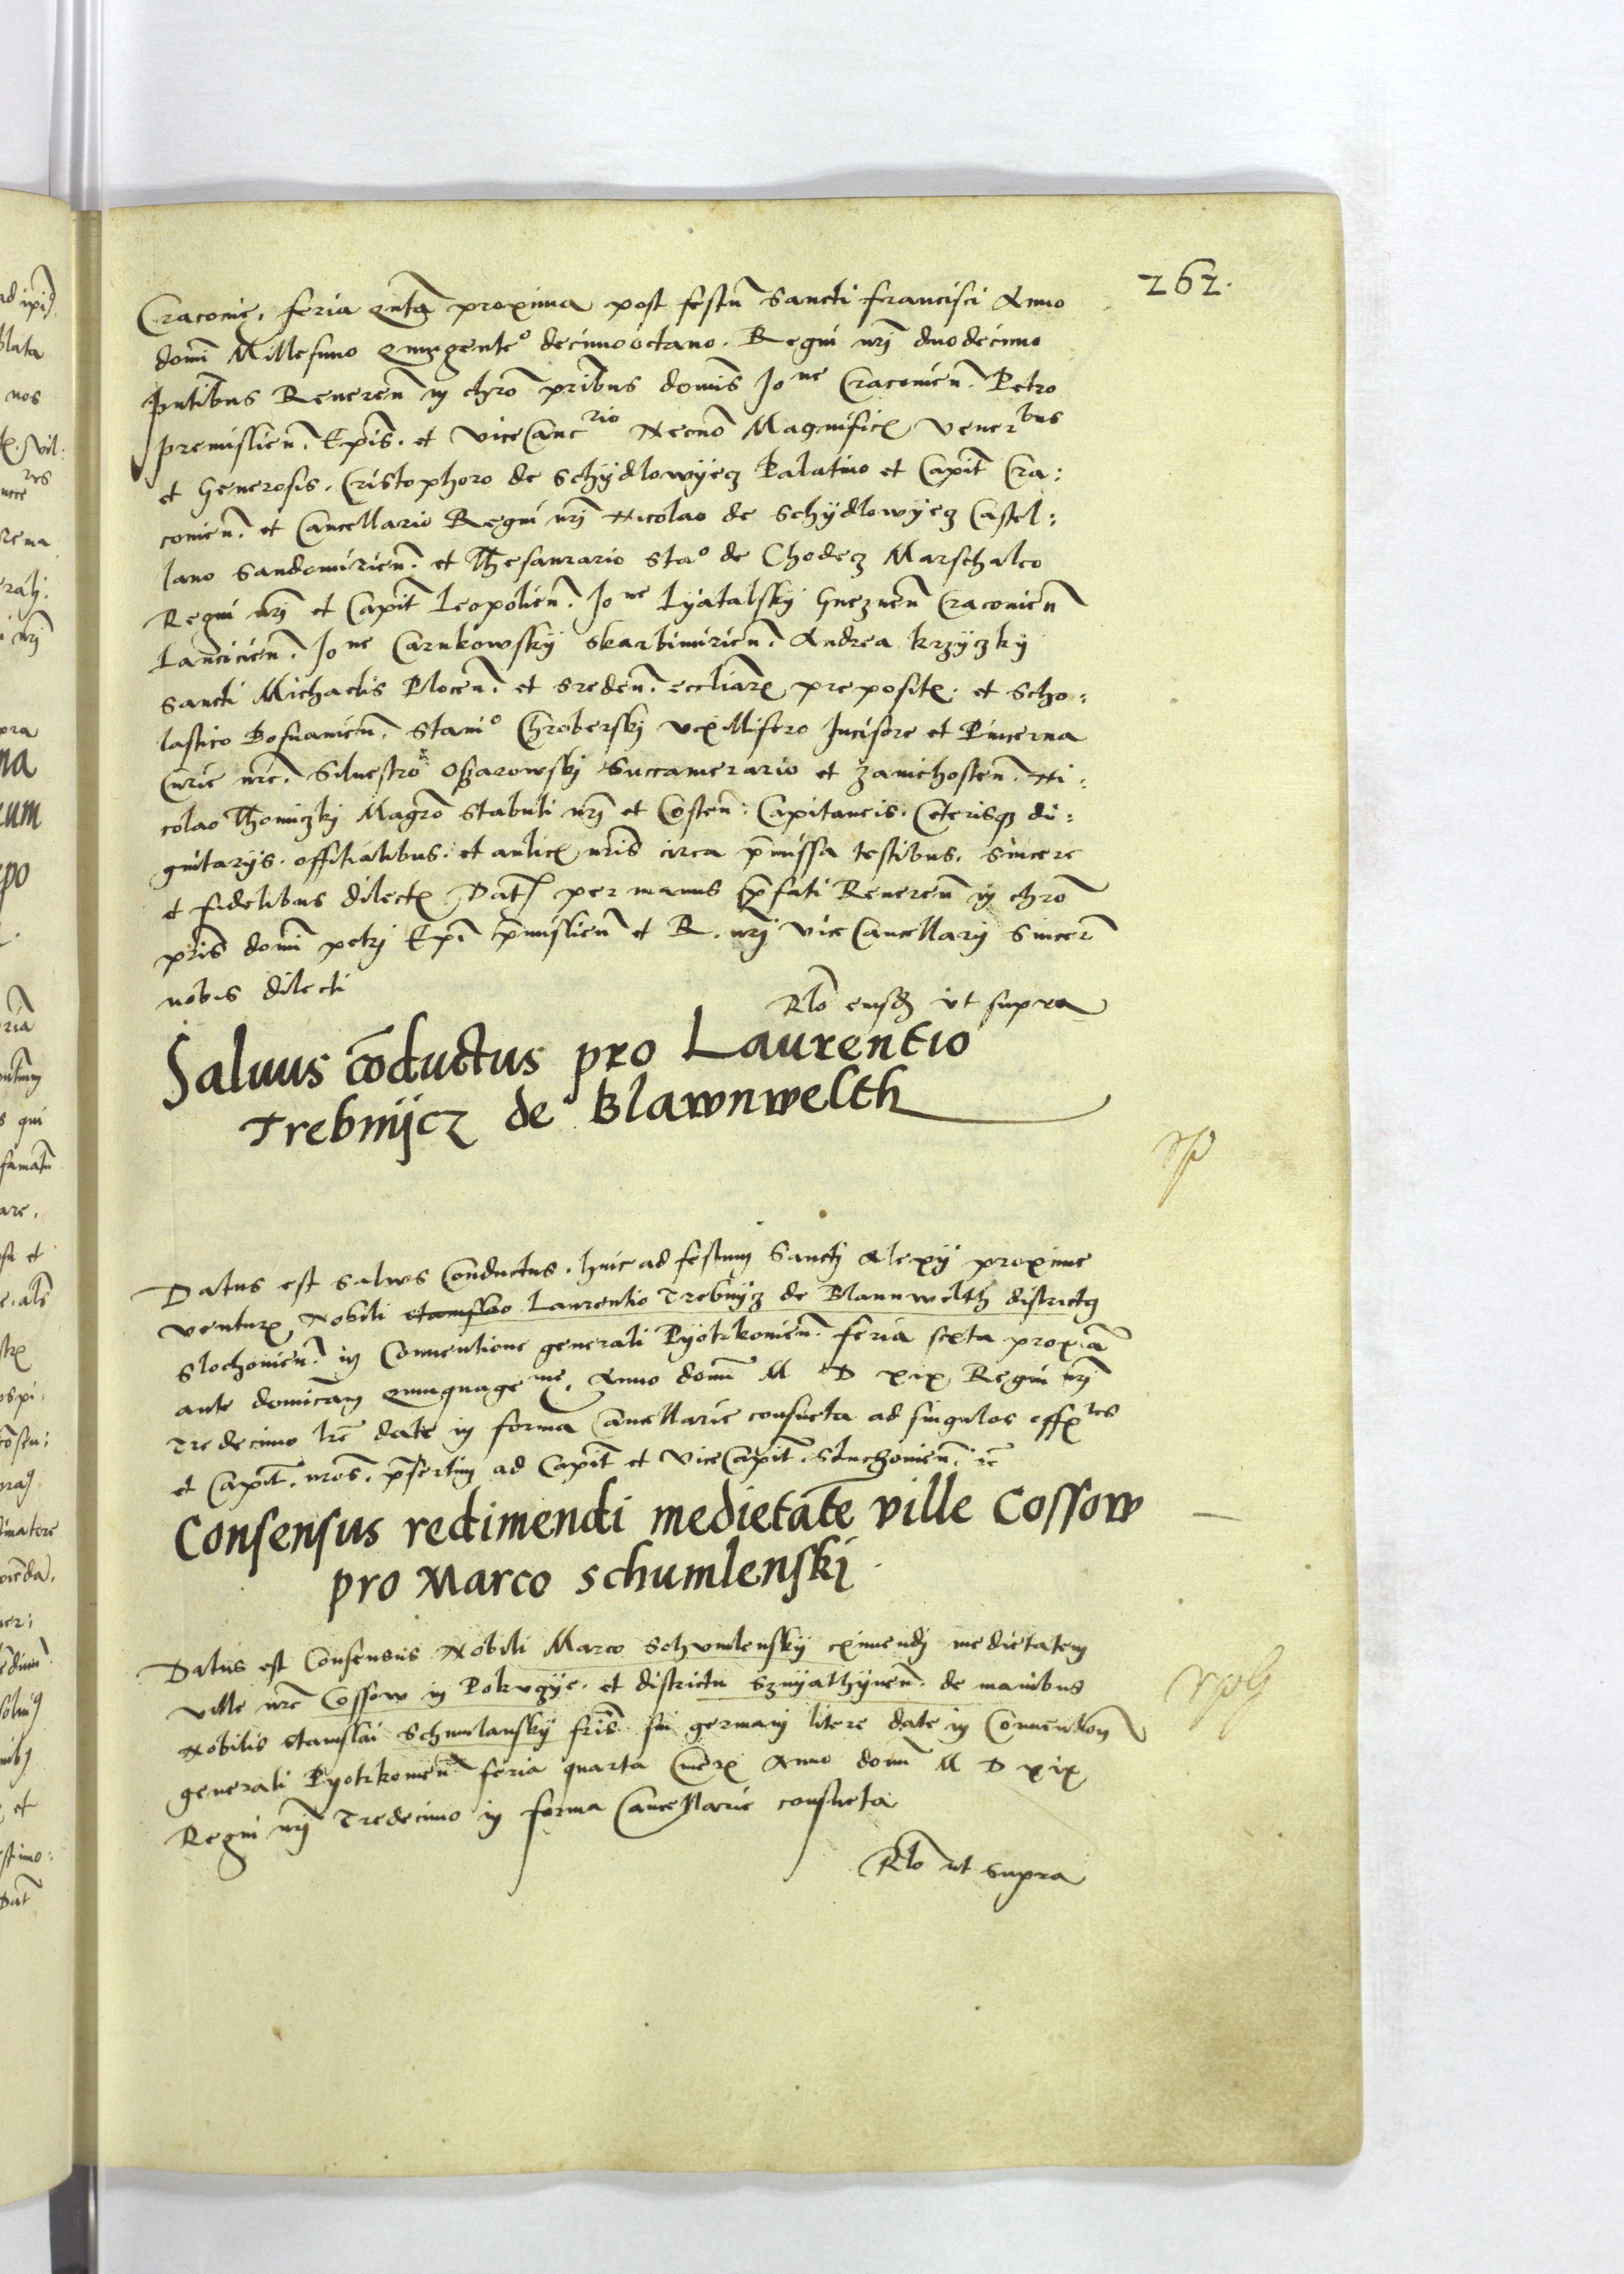 262.
Cracovie, feria qnta proxima post festu Sancti francisci Anno
domi Millesimo quingente° decimooctavo. Regni nri duodecimo
pntibus Reveren in chro pribus domis Jo ne Cracovien. Petro
premislien. Epis. et viceCanc rio Necno Magnificis vener bus
et Generosis. Cristophoro de Schydlowyecz Palatino et Capit Cra:
covien. et Cancellario Regni nri Nicolao de Schydlowyecz Castel:
lano Sandomirien. et Thesaurario Sta° de Chodecz Marschalco
Regni nri et Capit Leopolien. Jo ne Lyatalsky Gneznen Cracovien
Lancicien. Jo ne Carnkowsky Skarbimirien. Andrea krzyczky
Sancti Michaelis Plocen. et Sreden. eccliarum prepositis. et Scho:
lastico Posnanien. Stani° Chroberskj vexillifero Incisore et Pincerna
Curie nre. Silvestro Ozarowskj Succamerario et Zavichosten. Ni:
colao Thomiczkj Magro Stabuli nri et Costen. Capitaneis. Ceterisque di:
gnitarijs. offitialibus. et aulicis nris circa pmissa testibus. sincere
et fidelibus dilectis Dat per manus pfati Reveren in chro
pris domi petrj Epi pmislien et R. nrj viceCancellarij Sincere
nobis dilecti
Rlo eiusdem ut supra
Salvus coductus pro Laurentio
Trebnijcz de Blawnwelth
Datus est Salvus Conductus. hinc ad festum Sancti Alexij proxime
venturum Nobili stanislao Laurentio Trebnycz de Blaunwelth districtus
Slochovien. in Conventione generali Pyotrkovien. feria sexta proxia
ante dominicam quinquage me. Anno domi M D xix Regni nri
Tredecimo lre date in forma Cancellarie consueta ad singulos offi les
et Capit. nros. psertim ad Capit et viceCapit. Sluchovien. rc
Consensus redimendi medietate ville Cossow
pro Marco Schumlenskj
Datus est Consensus Nobili Marco Schumlensky eximendi medietatem
ville nre Cossow in Pokvczye. et districtu Sznyathynen. de manibus
Nobilis Stanislai Schumlansky fris sui germani litere date in Conventione
generali Pyotrkovien feria quarta Cinerum Anno domi M D xix
Regni nri Tredecimo in forma Cancellarie consueta
Rlo ut supra